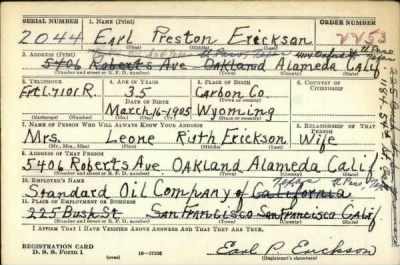 SERIAL NUMBER 1. NAME (Print) ORDER NUMBER
2044 Earl Preston Erickson
(First) (Middle) (Last)
2. ADDRESS (Print)
5406 Roberts Ave OAKLAND Alameda Calif
(Number and street or R. F. D. number) (Town) (County) (State)
3. TELEPHONE 4. AGE IN YEARS 5. PLACE OF BIRTH 6. COUNTRY OF CITIZENSHIP
35 Carbon Co.
DATE OF BIRTH (Town or county)
March 16-1905 Wyoming
(Exchange) (Number) (Mo.) (Day) (Yr.) (State or country)
7. NAME OF PERSON WHO WILL ALWAYS KNOW YOUR ADDRESS 8. RELATIONSHIP OF THAT PERSON
Mrs. Leone Ruth Erickson Wife
(Mr., Mrs., Miss) (First) (Middle) (Last)
9. ADDRESS OF THAT PERSON
5406 Roberts Ave OAKLAND Alameda Calif.
(Number and street or R. F. D. number) (Town) (County) (State)
10. EMPLOYER'S NAME
Standard Oil Company of California
11. PLACE OF EMPLOYMENT OR BUSINESS
225 Bush St San Francisco San Francisco Calif.
(Number and street or R. F. D. number) (Town) (County) (State)
I AFFIRM THAT I HAVE VERIFIED ABOVE ANSWERS AND THAT THEY ARE TRUE.
REGISTRATION CARD
D. S. S. Form 1 (over) Earl P. Erickson
(Registrant's signature)